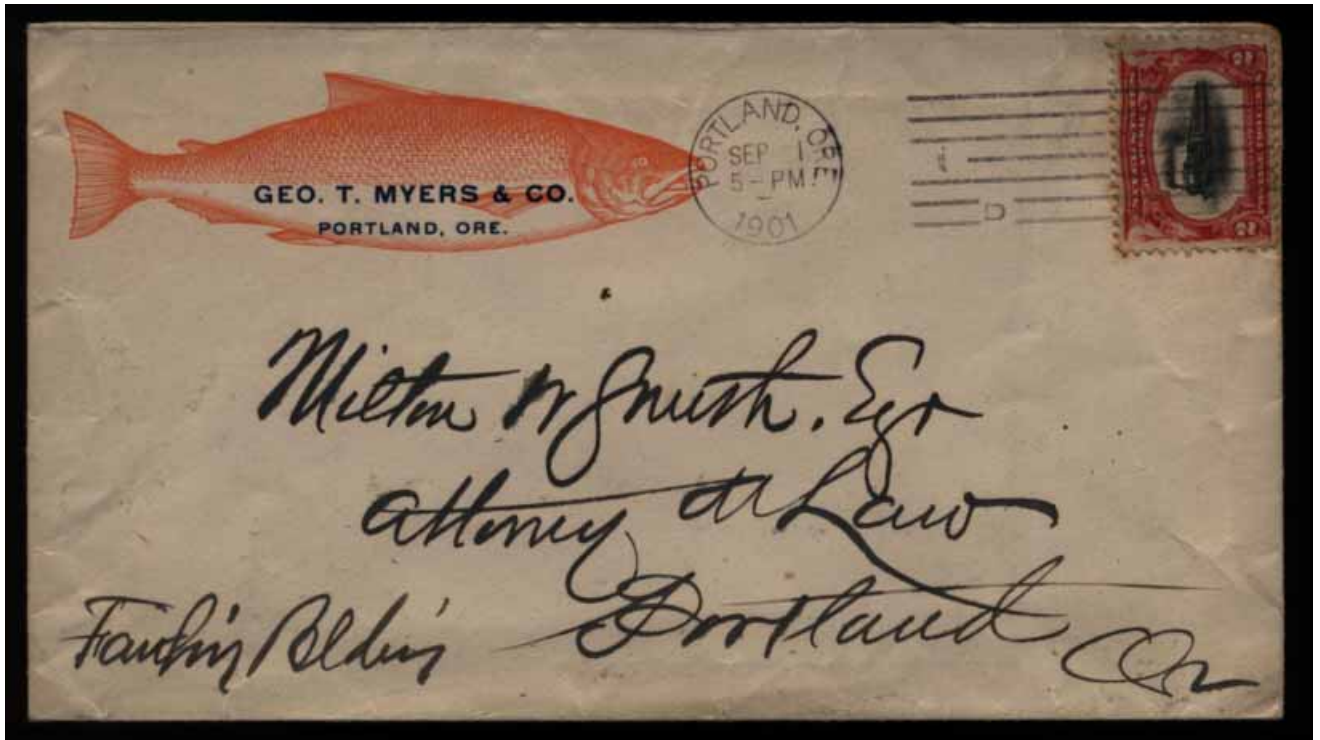 GEO. T. MYERS & CO.
PORTLAND, ORE.
PORTLAND, ORE.
SEP 1
5 - PM
1901
D
2 2
Milton W Smith. Esqr
Attorney at Law
Portland
Or